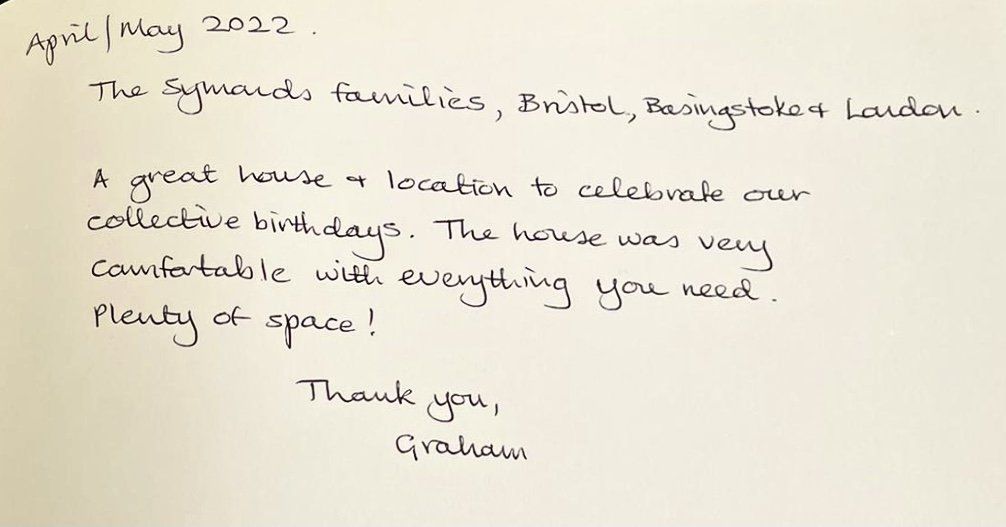 April/May 2022.
The Symonds families, Bristol, Basingstoke & London.
A great house & location to celebrate our
collective birthdays. The house was very
comfortable with everything you need.
Plenty of space!
Thank you,
Graham